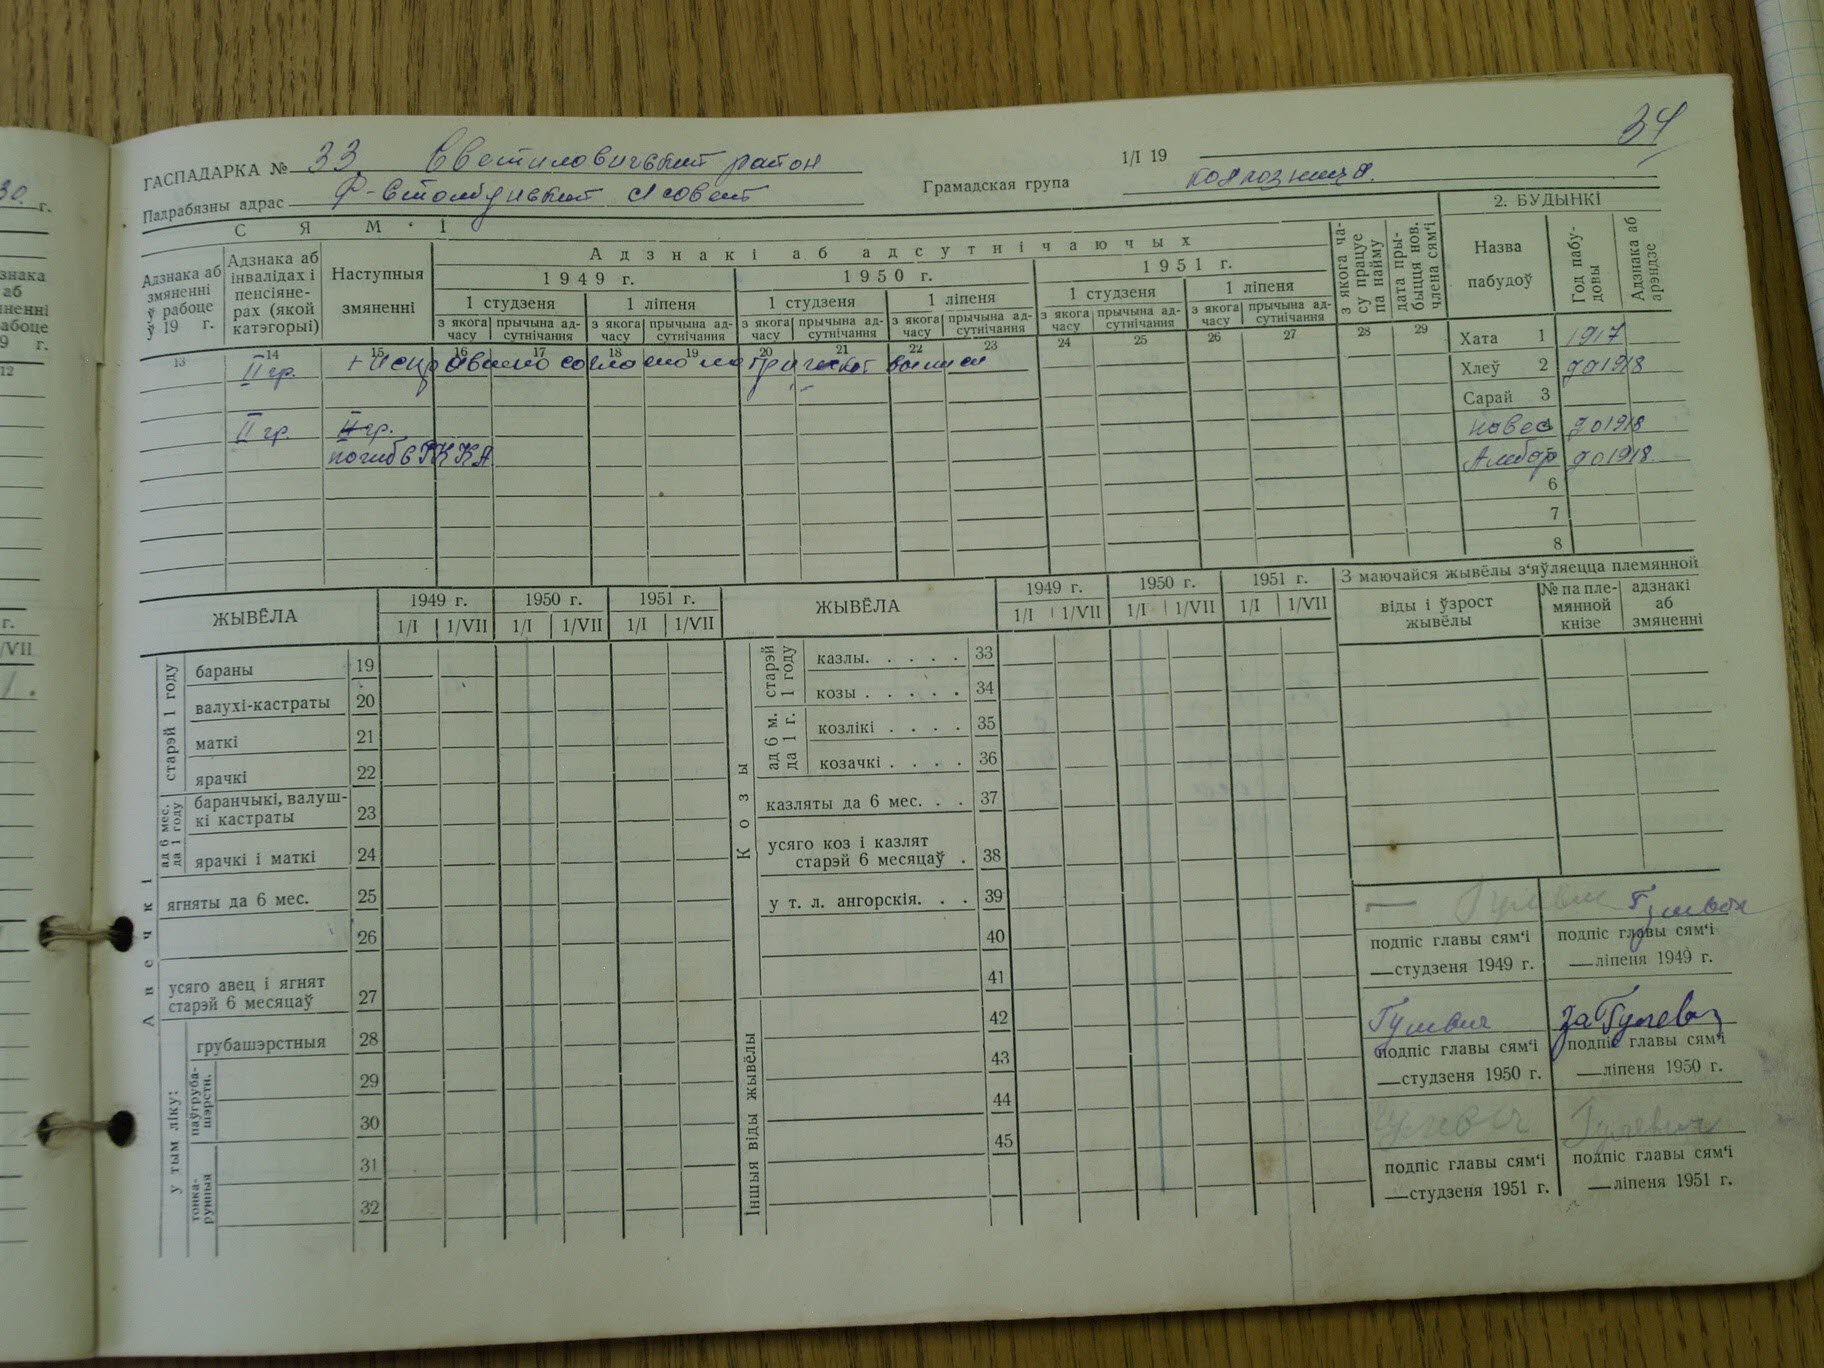 34
ГАСПАДАРКА № 33. Светиловичский район
1/I 19
Падрабязны адрас Ф-Столбунский с/совет
Грамадская група колхозница.
С Я М ' І
2. БУДЫНКІ
Адзнака аб змяненні ў рабоце ў 19 г.
Адзнака аб інвалідах і пенсіянерах (якой катэгорыі)
Наступныя змяненні
Адзнакі аб адсутнічаючых
1949 г. 1950 г. 1951 г.
1 студзеня 1 ліпеня 1 студзеня 1 ліпеня 1 студзеня 1 ліпеня
з якога часу прычына адсутнічання з якога часу прычына адсутнічання з якога часу прычына адсутнічання з якога часу прычына адсутнічання з якога часу прычына адсутнічання з якога часу прычына адсутнічання
з якога часу працуе па найму
дата прыбыцця нов. члена сям'і
Назва пабудоў
Год пабудовы
Адзнака аб арэндзе
13 14 15 16 17 18 19 20 21 22 23 24 25 26 27 28 29
II гр. + Исправлено согласно
Хата 1 1917
Хлеў 2 до 1918
Сарай 3
II гр. II гр.
навес до 1918
погиб в РККА
Амбар до 1918.
6
7
8
ЖЫВЁЛА 1949 г. 1950 г. 1951 г.
1/I 1/VII 1/I 1/VII 1/I 1/VII
Авечкі
старэй 1 году
бараны 19
валухі-кастраты 20
маткі 21
ярачкі 22
ад 6 мес. да 1 году
баранчыкі, валушкі кастраты 23
ярачкі і маткі 24
ягняты да 6 мес. 25
26
усяго авец і ягнят старэй 6 месяцаў 27
у тым ліку:
грубашэрстныя 28
паўгрубашэрстн.
29
30
тонкарунныя
31
32
ЖЫВЁЛА 1949 г. 1950 г. 1951 г.
1/I 1/VII 1/I 1/VII 1/I 1/VII
Козы
старэй 1 году
казлы. . . . . 33
козы . . . . . 34
ад 6 м. да 1 г.
козлікі . . . . 35
козачкі . . . . 36
казляты да 6 мес. . . 37
усяго коз і казлят
старэй 6 месяцаў . 38
у т. л. ангорскія. . . 39
40
41
Іншыя віды жывёлы
42
43
44
45
З маючайся жывёлы з'яўляецца племянной
віды і ўзрост жывёлы
№ па племянной кнізе
адзнакі аб змяненні
подпіс главы сям'і подпіс главы сям'і
—студзеня 1949 г. —ліпеня 1949 г.
за Гулевич
подпіс главы сям'і подпіс главы сям'і
—студзеня 1950 г. —ліпеня 1950 г.
Гулевич Гулевич
подпіс главы сям'і подпіс главы сям'і
—студзеня 1951 г. —ліпеня 1951 г.